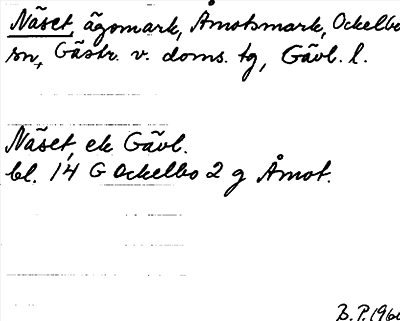 Näset, ägomark, Åmotsmark, Ockelbo
sn, Gästr. v. doms. tg, Gävl. l.
Näset, ek Gävl.
bl. 14 G Ockelbo 2 g Åmot.
B. P. 196